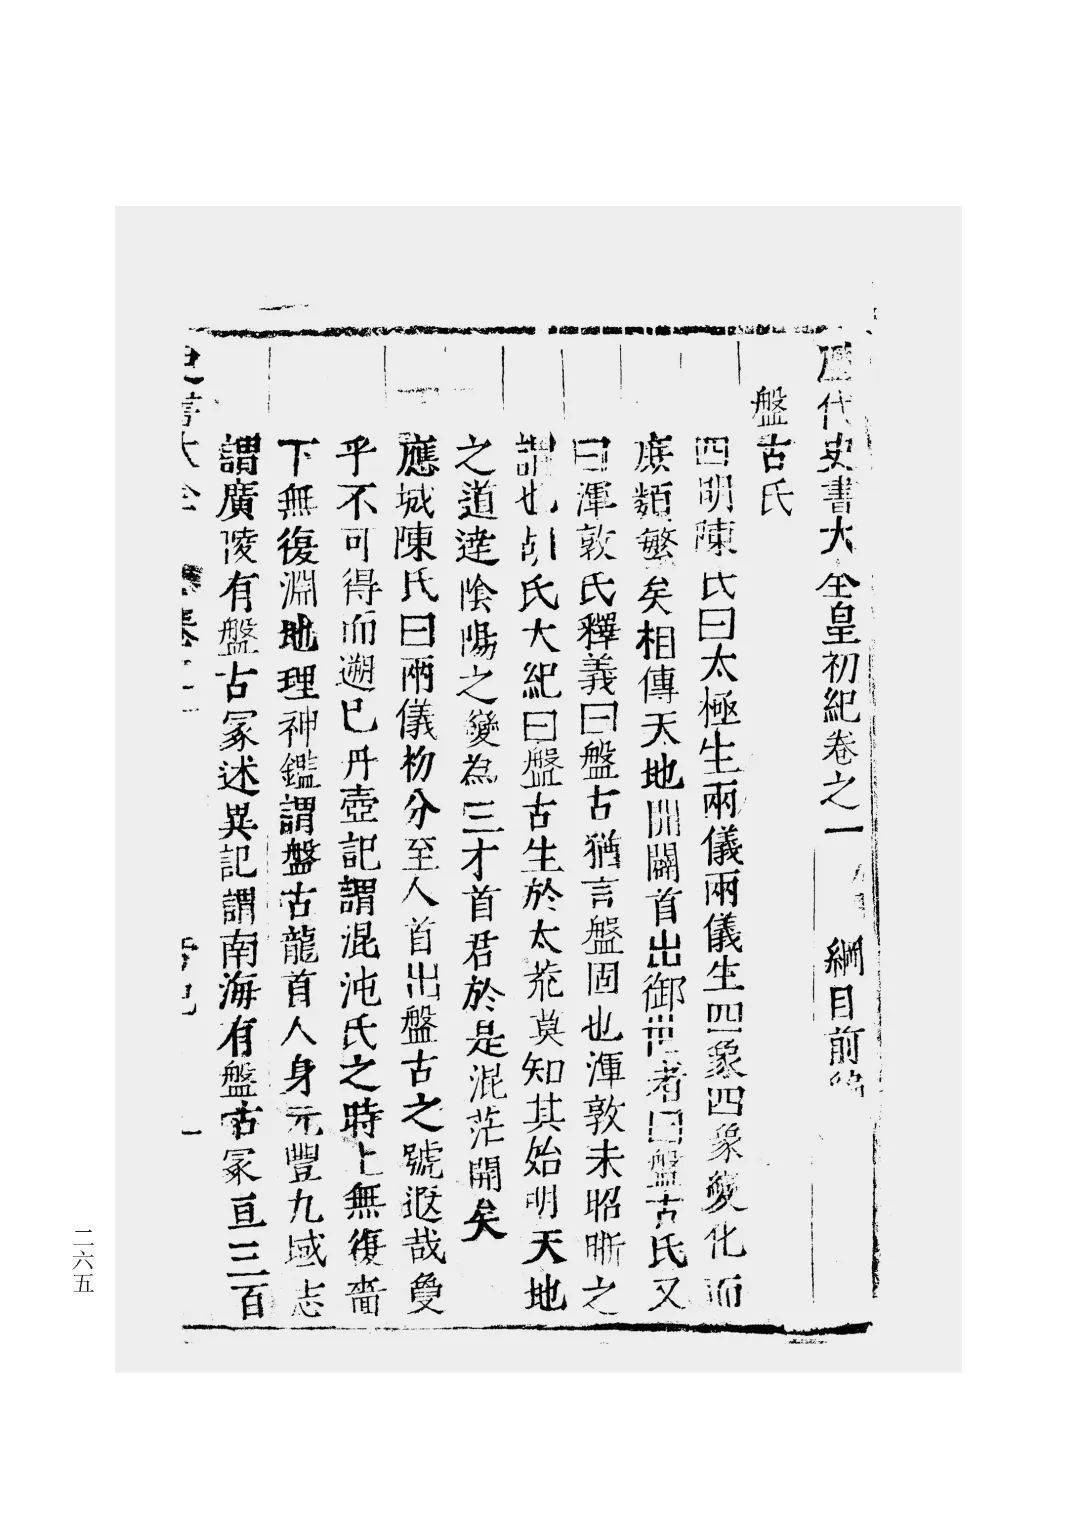 歷代史書大全皇初紀卷之一 綱目前編
盤古氏
四明陳氏曰太極生兩儀兩儀生四象四象變化而
庶類繁矣相傳天地開闢首出御世者曰盤古氏又
曰渾敦氏釋義曰盤古猶言盤固也渾敦未昭晰之
謂也胡氏大紀曰盤古生於太荒莫知其始明天地
之道達陰陽之變為三才首君於是混茫開矣
應城陳氏曰兩儀初分至人首出盤古之號遐哉敻
乎不可得而遡已丹壺記謂混沌氏之時上無復啬
下無復淵地理神鑑謂盤古龍首人身元豐九域志
謂廣陵有盤古冢述異記謂南海有盤古冢亘三百
史書大全
二六五